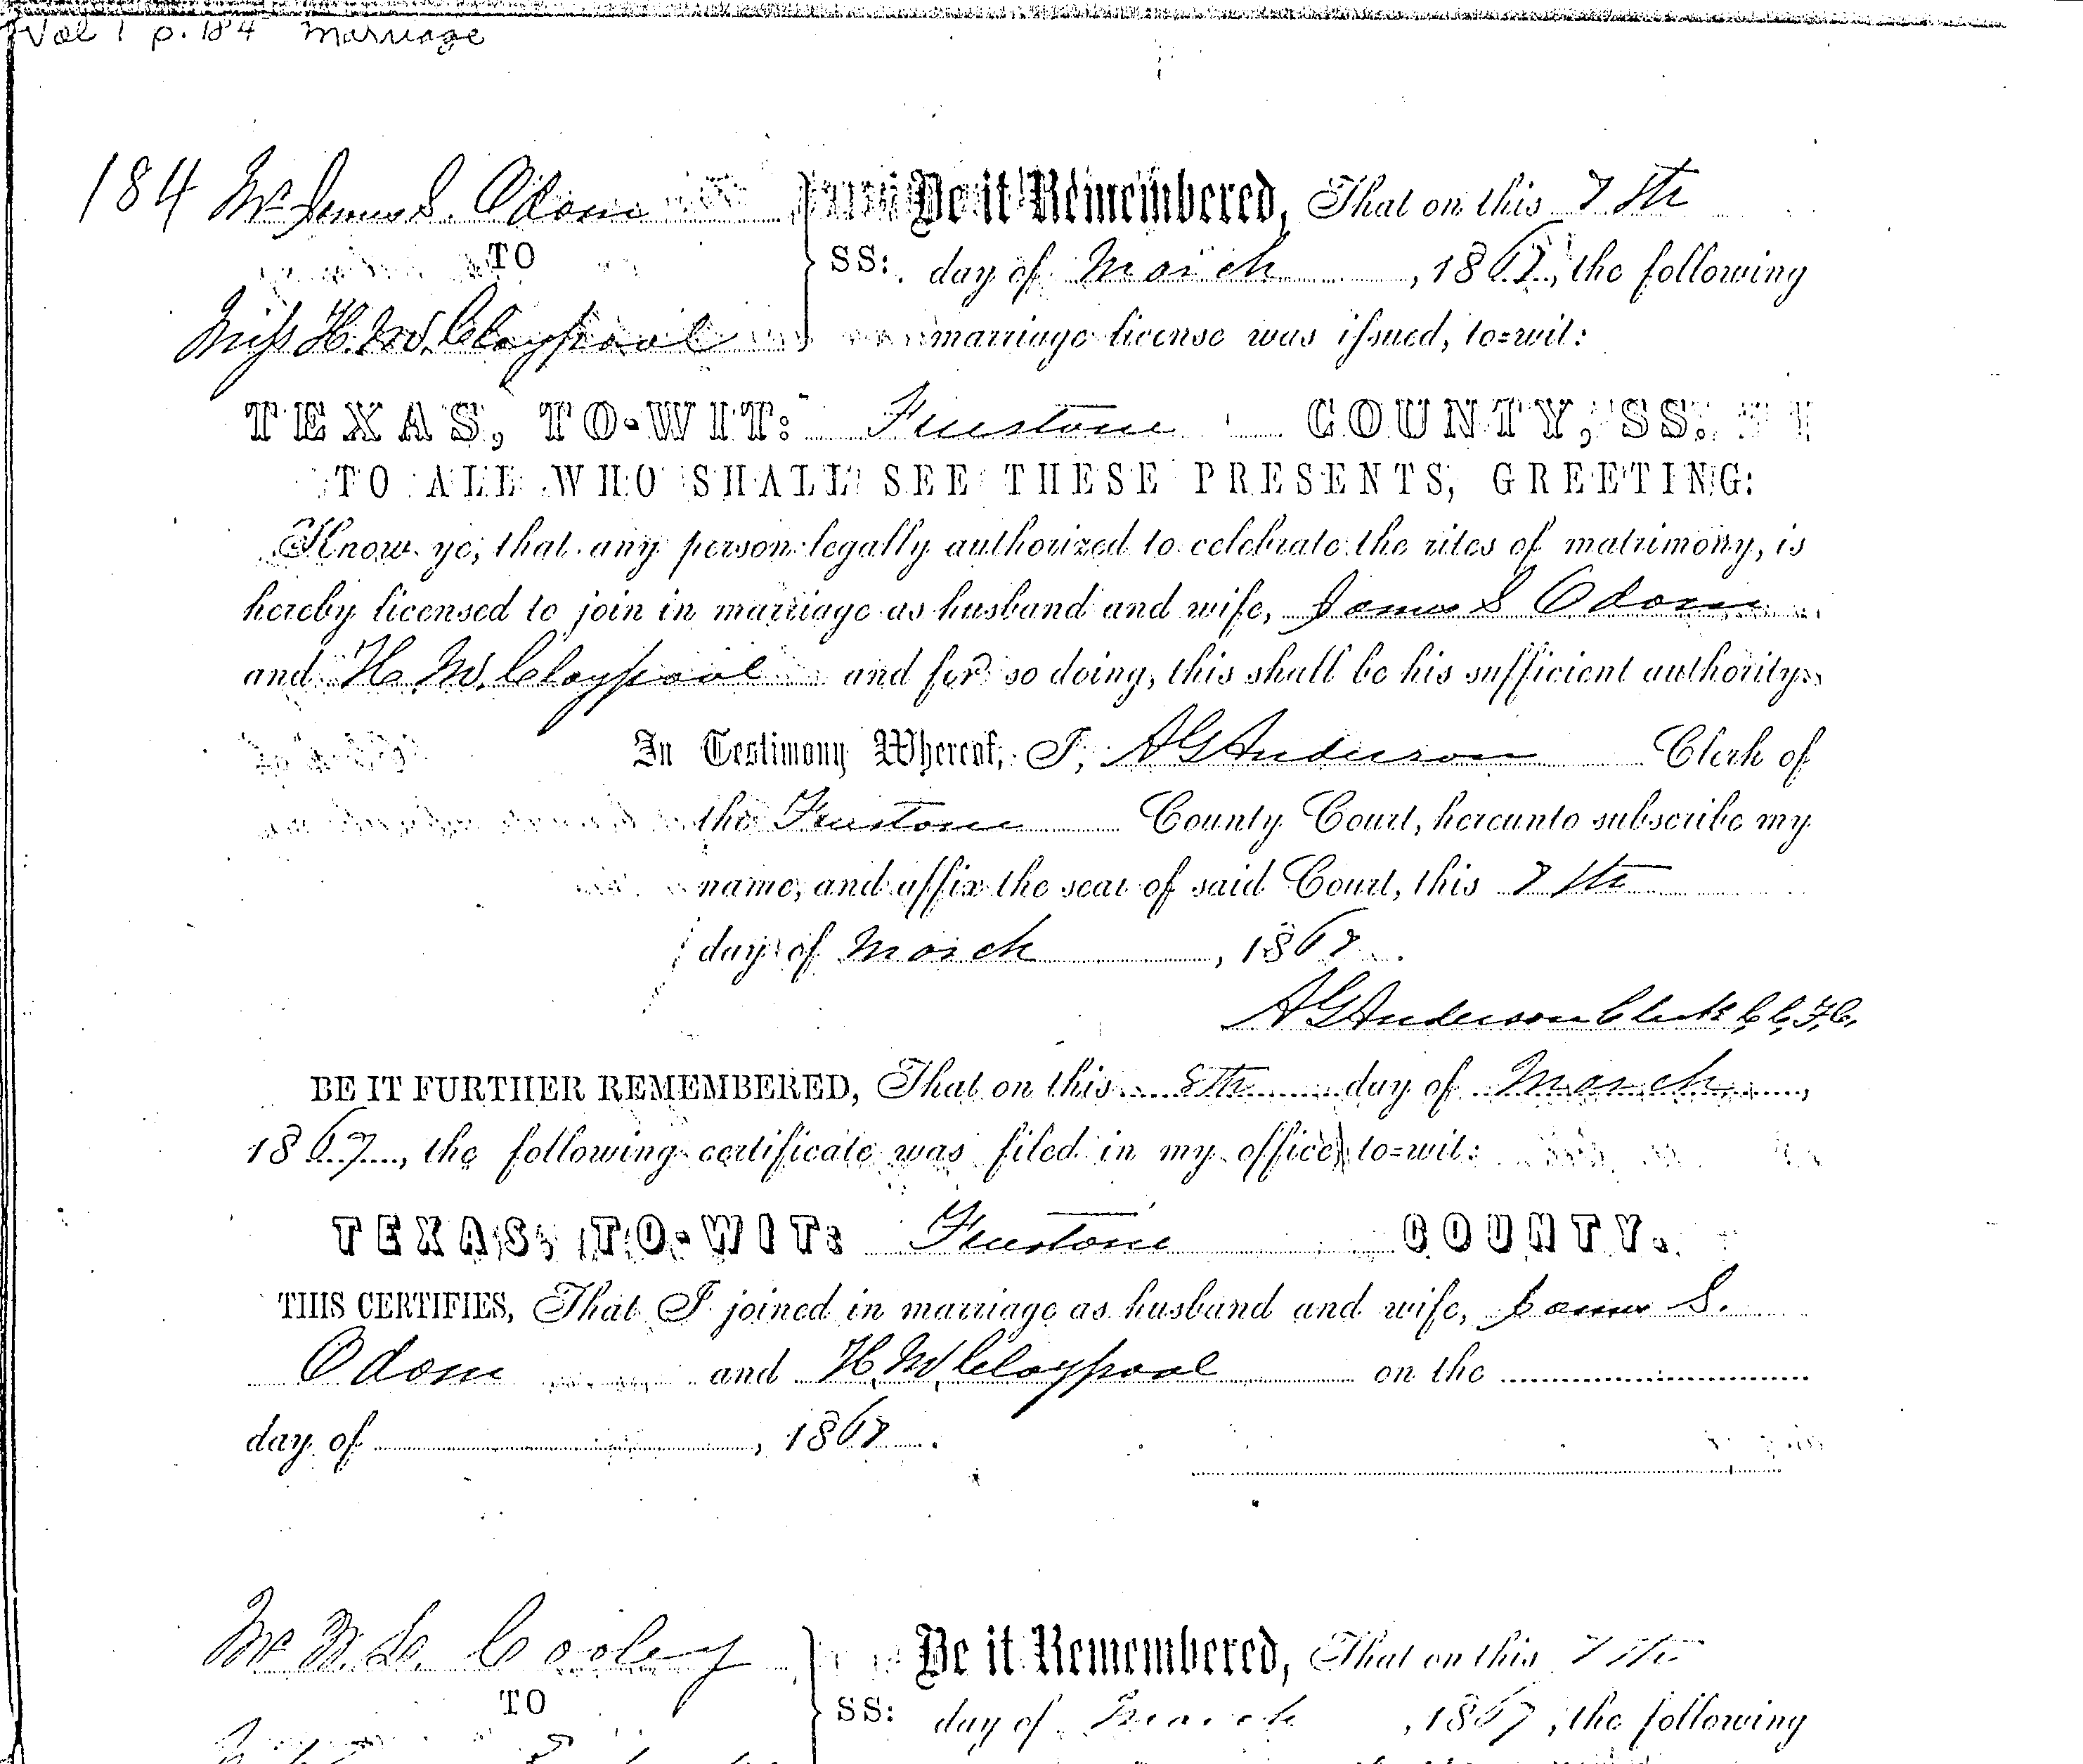 Vol 1 p. 184 Marriage
184 Mr James S. Odom
TO
Miss H. M. Claypool
SS:
Be it Remembered, That on this 7th
day of March, 1867, the following
marriage license was issued, to=wit:
TEXAS, TO-WIT: Freestone COUNTY, SS.
TO ALL WHO SHALL SEE THESE PRESENTS, GREETING:
Know ye, that any person legally authorized to celebrate the rites of matrimony, is
hereby licensed to join in marriage as husband and wife, James S Odom
and H. M. Claypool and for so doing, this shall be his sufficient authority.
In Testimony Whereof, I, A G Anderson Clerk of
the Freestone County Court, hereunto subscribe my
name, and affix the seal of said Court, this 7th
day of March, 1867.
A G Anderson Clerk C. C. F. C.
BE IT FURTHER REMEMBERED, That on this 8th day of March,
1867, the following certificate was filed in my office, to=wit:
TEXAS, TO-WIT: Freestone COUNTY.
THIS CERTIFIES, That I joined in marriage as husband and wife, James S.
Odom and H. M. Claypool on the
day of , 1867.
Mr Cooley
TO
SS:
Be it Remembered, That on this 7th
day of March, 1867, the following